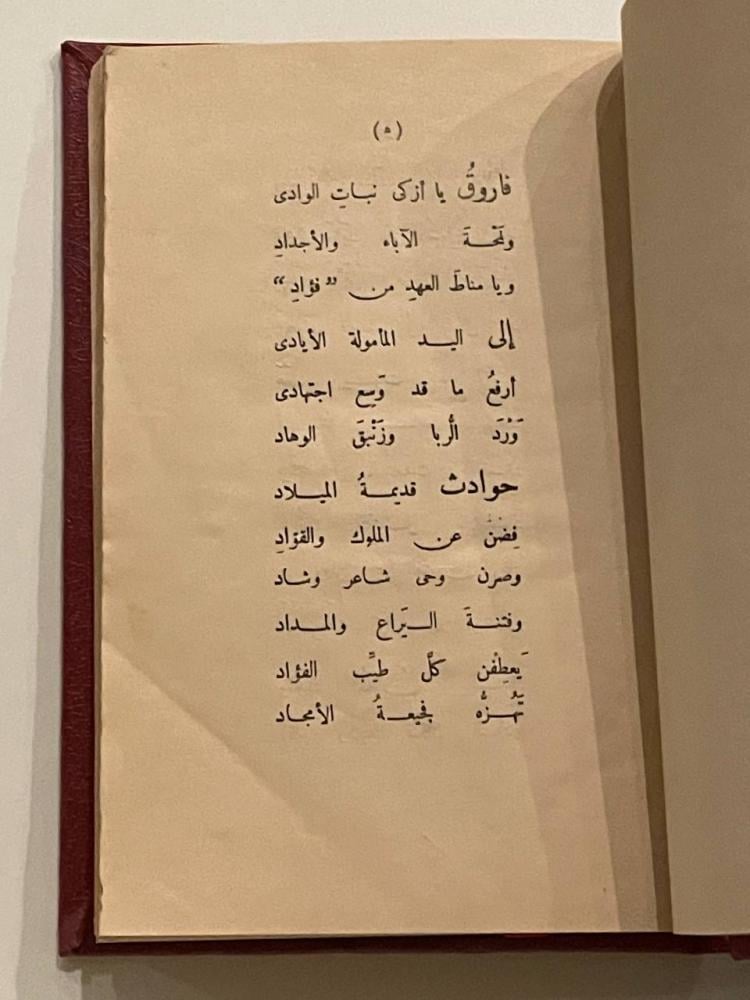 (٥)
فاروقُ يا أزكى نبـاتِ الوادى
ولمحـةَ الآباء والأجدادِ
ويا مناطَ العهدِ من ”فؤادِ“
إلى اليـد المأمولة الأيادى
أرفعُ ما قد وَسِع اجتهادى
وَرْدَ الرُّبا وزَنْبقَ الوهاد
حوادث قديمـةُ الميلاد
فِضْنَ عن الملوك والقوّادِ
وصرن وحى شاعر وشاد
وفتنـةَ اليَراع والمـداد
يَعطِفْن كلَّ طيِّب الفؤاد
تَهُـزُّه فجيعـةُ الأمجاد